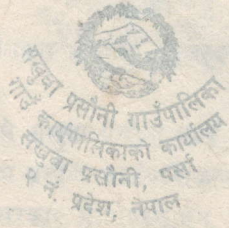 सखुवा प्रसौनी गाउँपालिका
गाउँ कार्यपालिकाको कार्यालय
सखुवा प्रसौनी, पर्सा
२ नं. प्रदेश, नेपाल